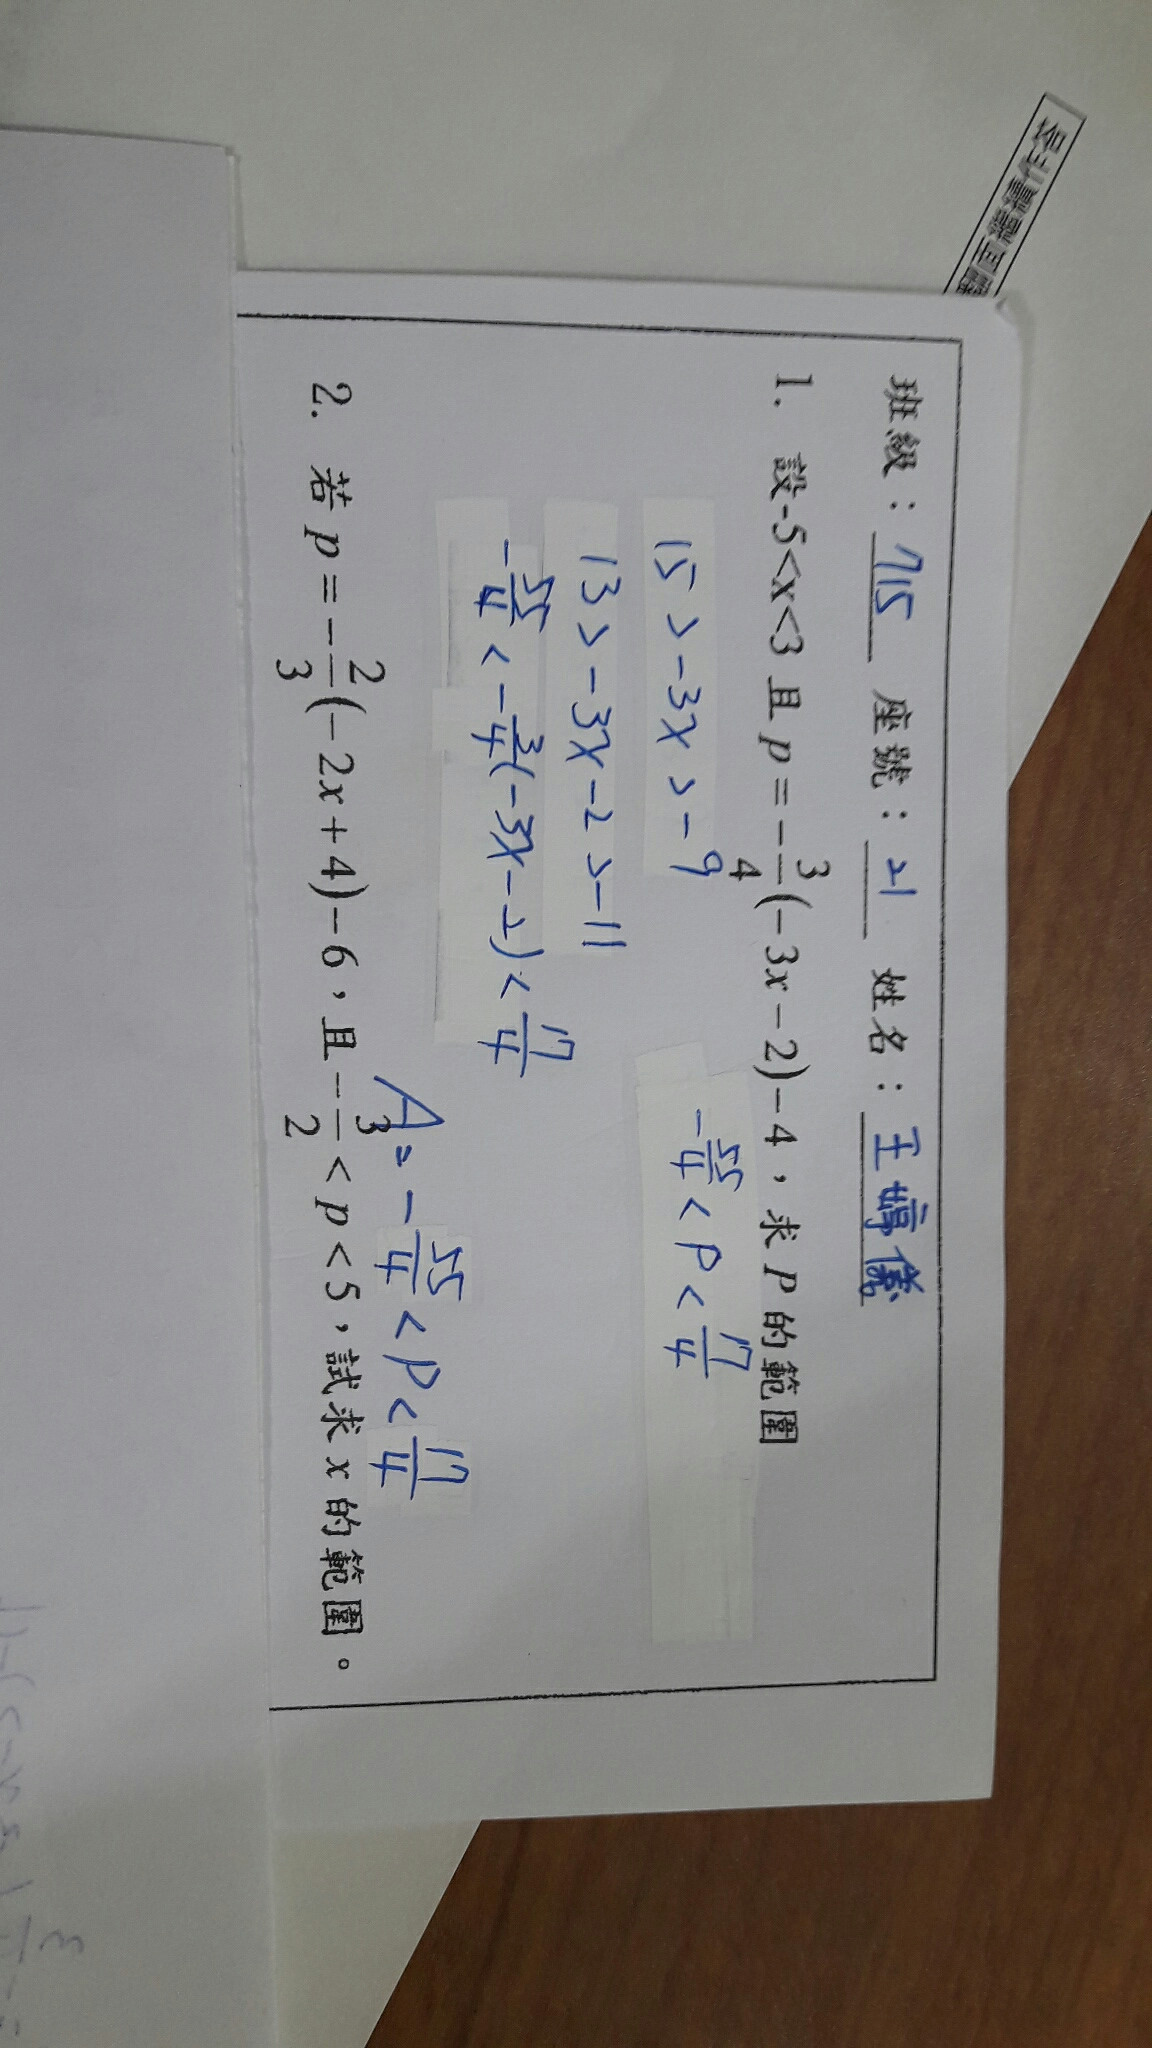 班級：715 座號：21 姓名：王婷儀
1. 設-5<x<3 且 p=-3/4(-3x-2)-4，求 P 的範圍
15>-3x>-9
13>-3x-2>-11
-55/4<-3/4(-3x-2)<17/4
-55/4<P<17/4
A=-55/4<P<17/4
2. 若 p=-2/3(-2x+4)-6，且-3/2<p<5，試求 x 的範圍。